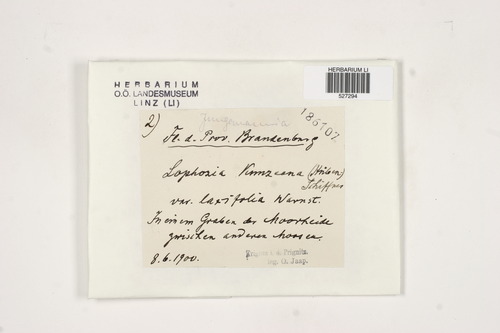 HERBARIUM LI
527294
HERBARIUM
O.Ö. LANDESMUSEUM
LINZ (LI)
Jungermannia
186107
2)
Fl. d. Prov. Brandenburg
Lophozia Kunzeana (Hüben.)
Schiffner
var. laxifolia Warnst.
In einem Graben der Moorheide
zwischen anderen Moosen.
8.6.1900.
Prignitz.
leg. O. Jaap.